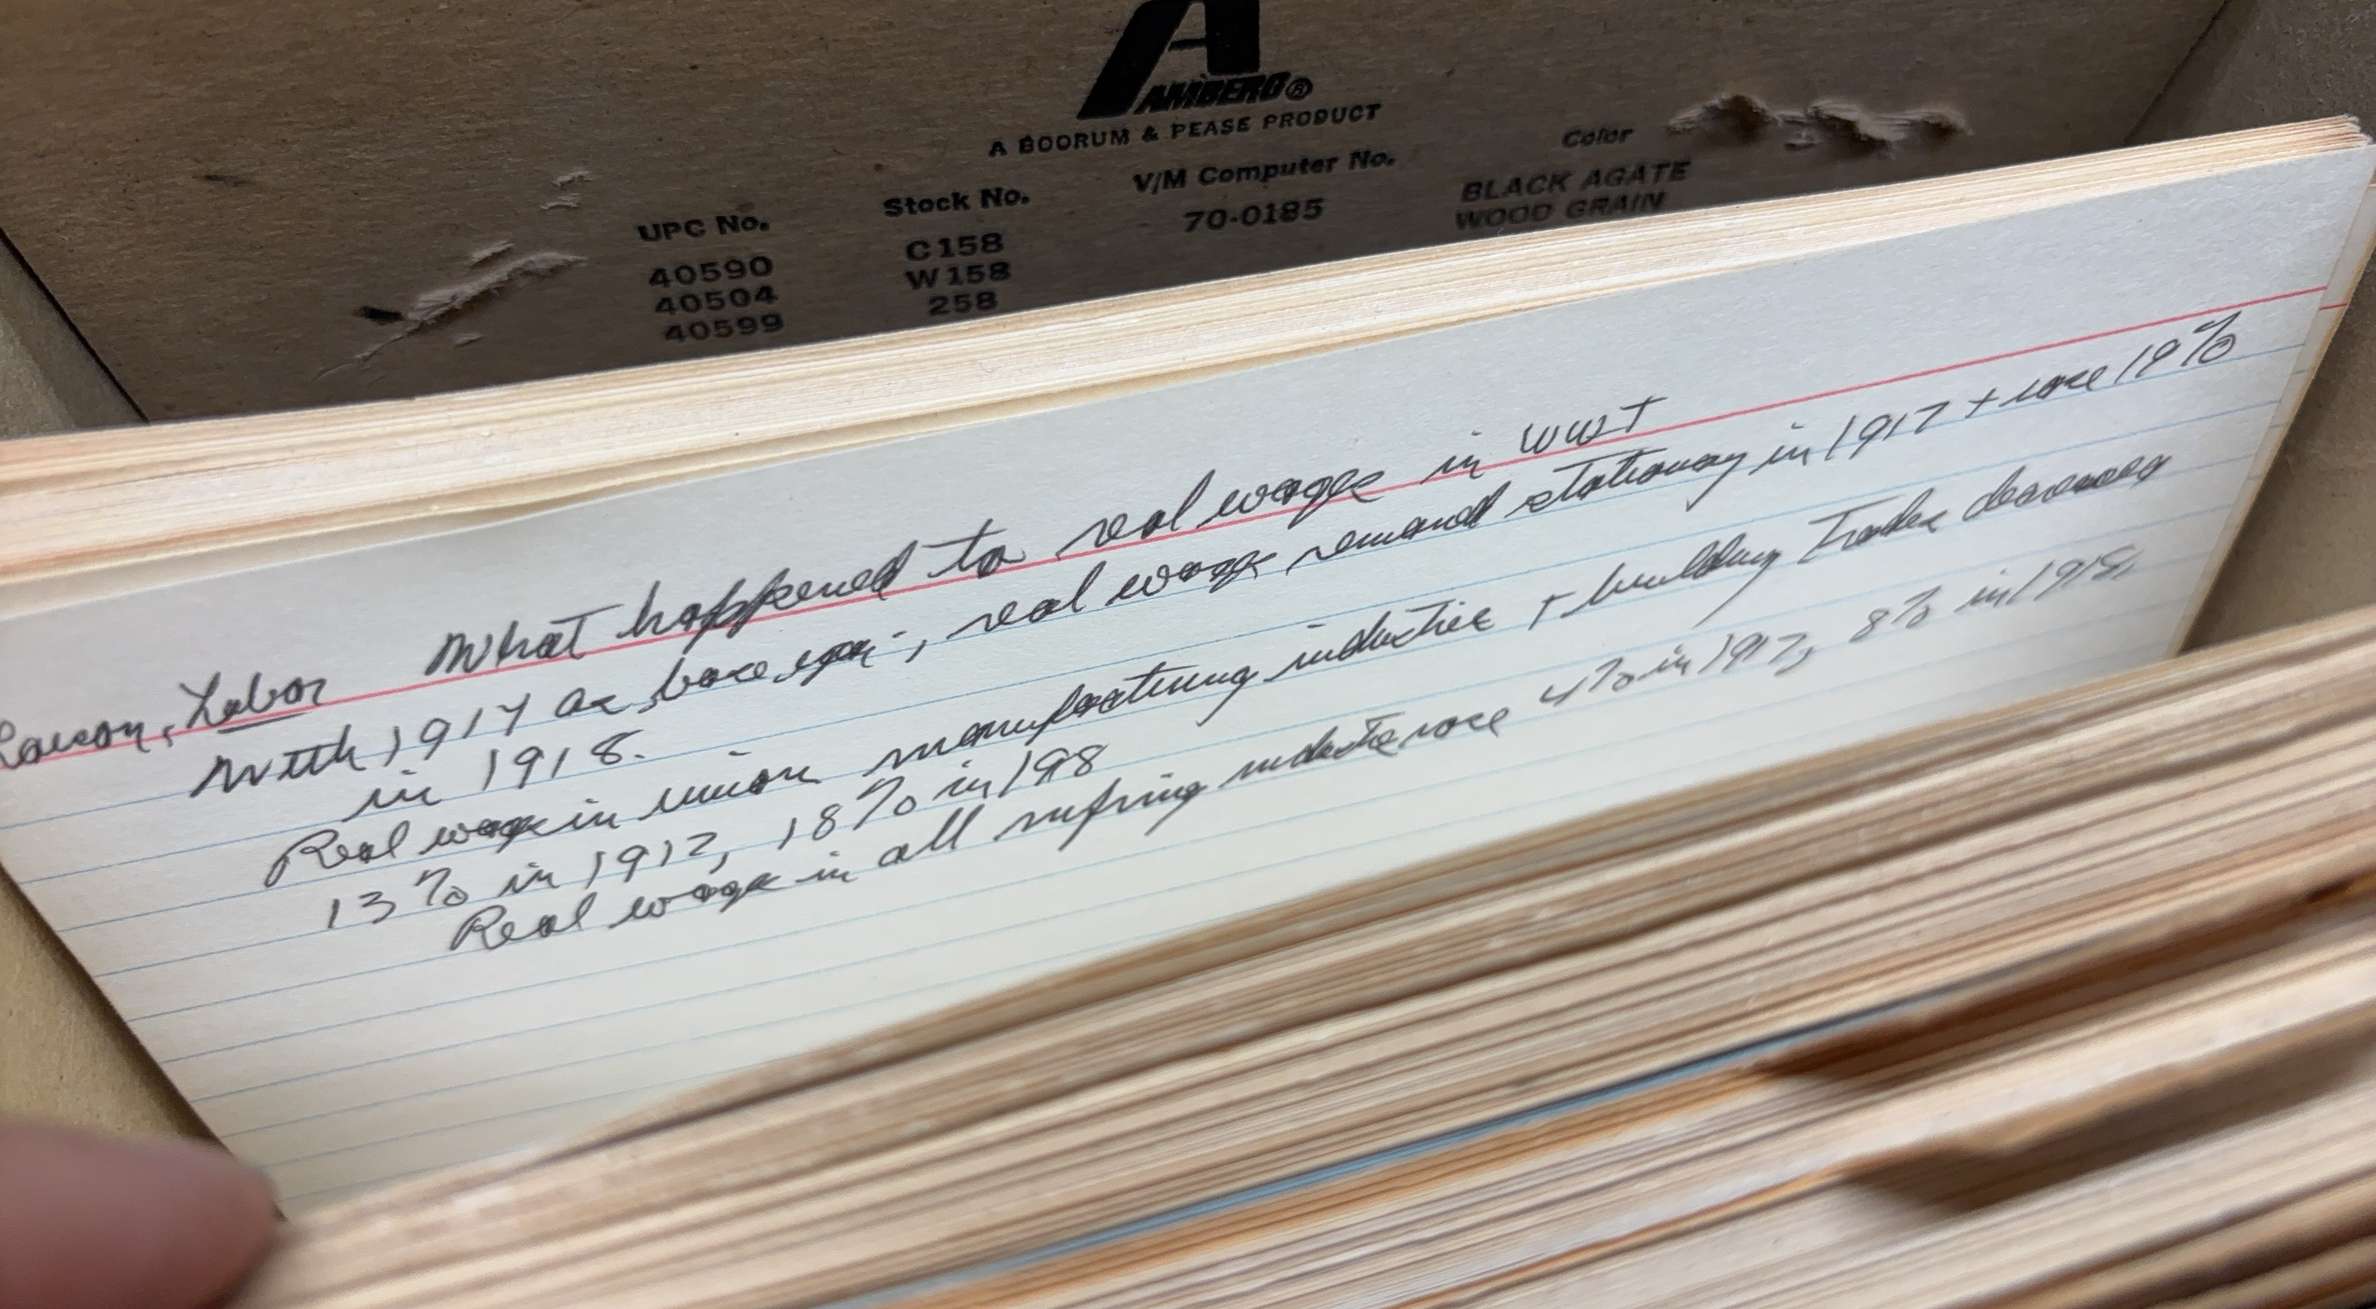 A
AMBERG®
A BOORUM & PEASE PRODUCT
UPC No. Stock No. V/M Computer No. Color
40590 C158 70-0185 BLACK AGATE
40504 W158 WOOD GRAIN
40599 258
Labor What happened to real wages in WWI
With 1914 as base year, real wage remained stationary in 1917 + rose
in 1918.
Real wages in union manufacturing industries + building trades decreased
13% in 1917, 18% in 1918
Real wages in all industries rose 4% in 1917, 8% in 1918,